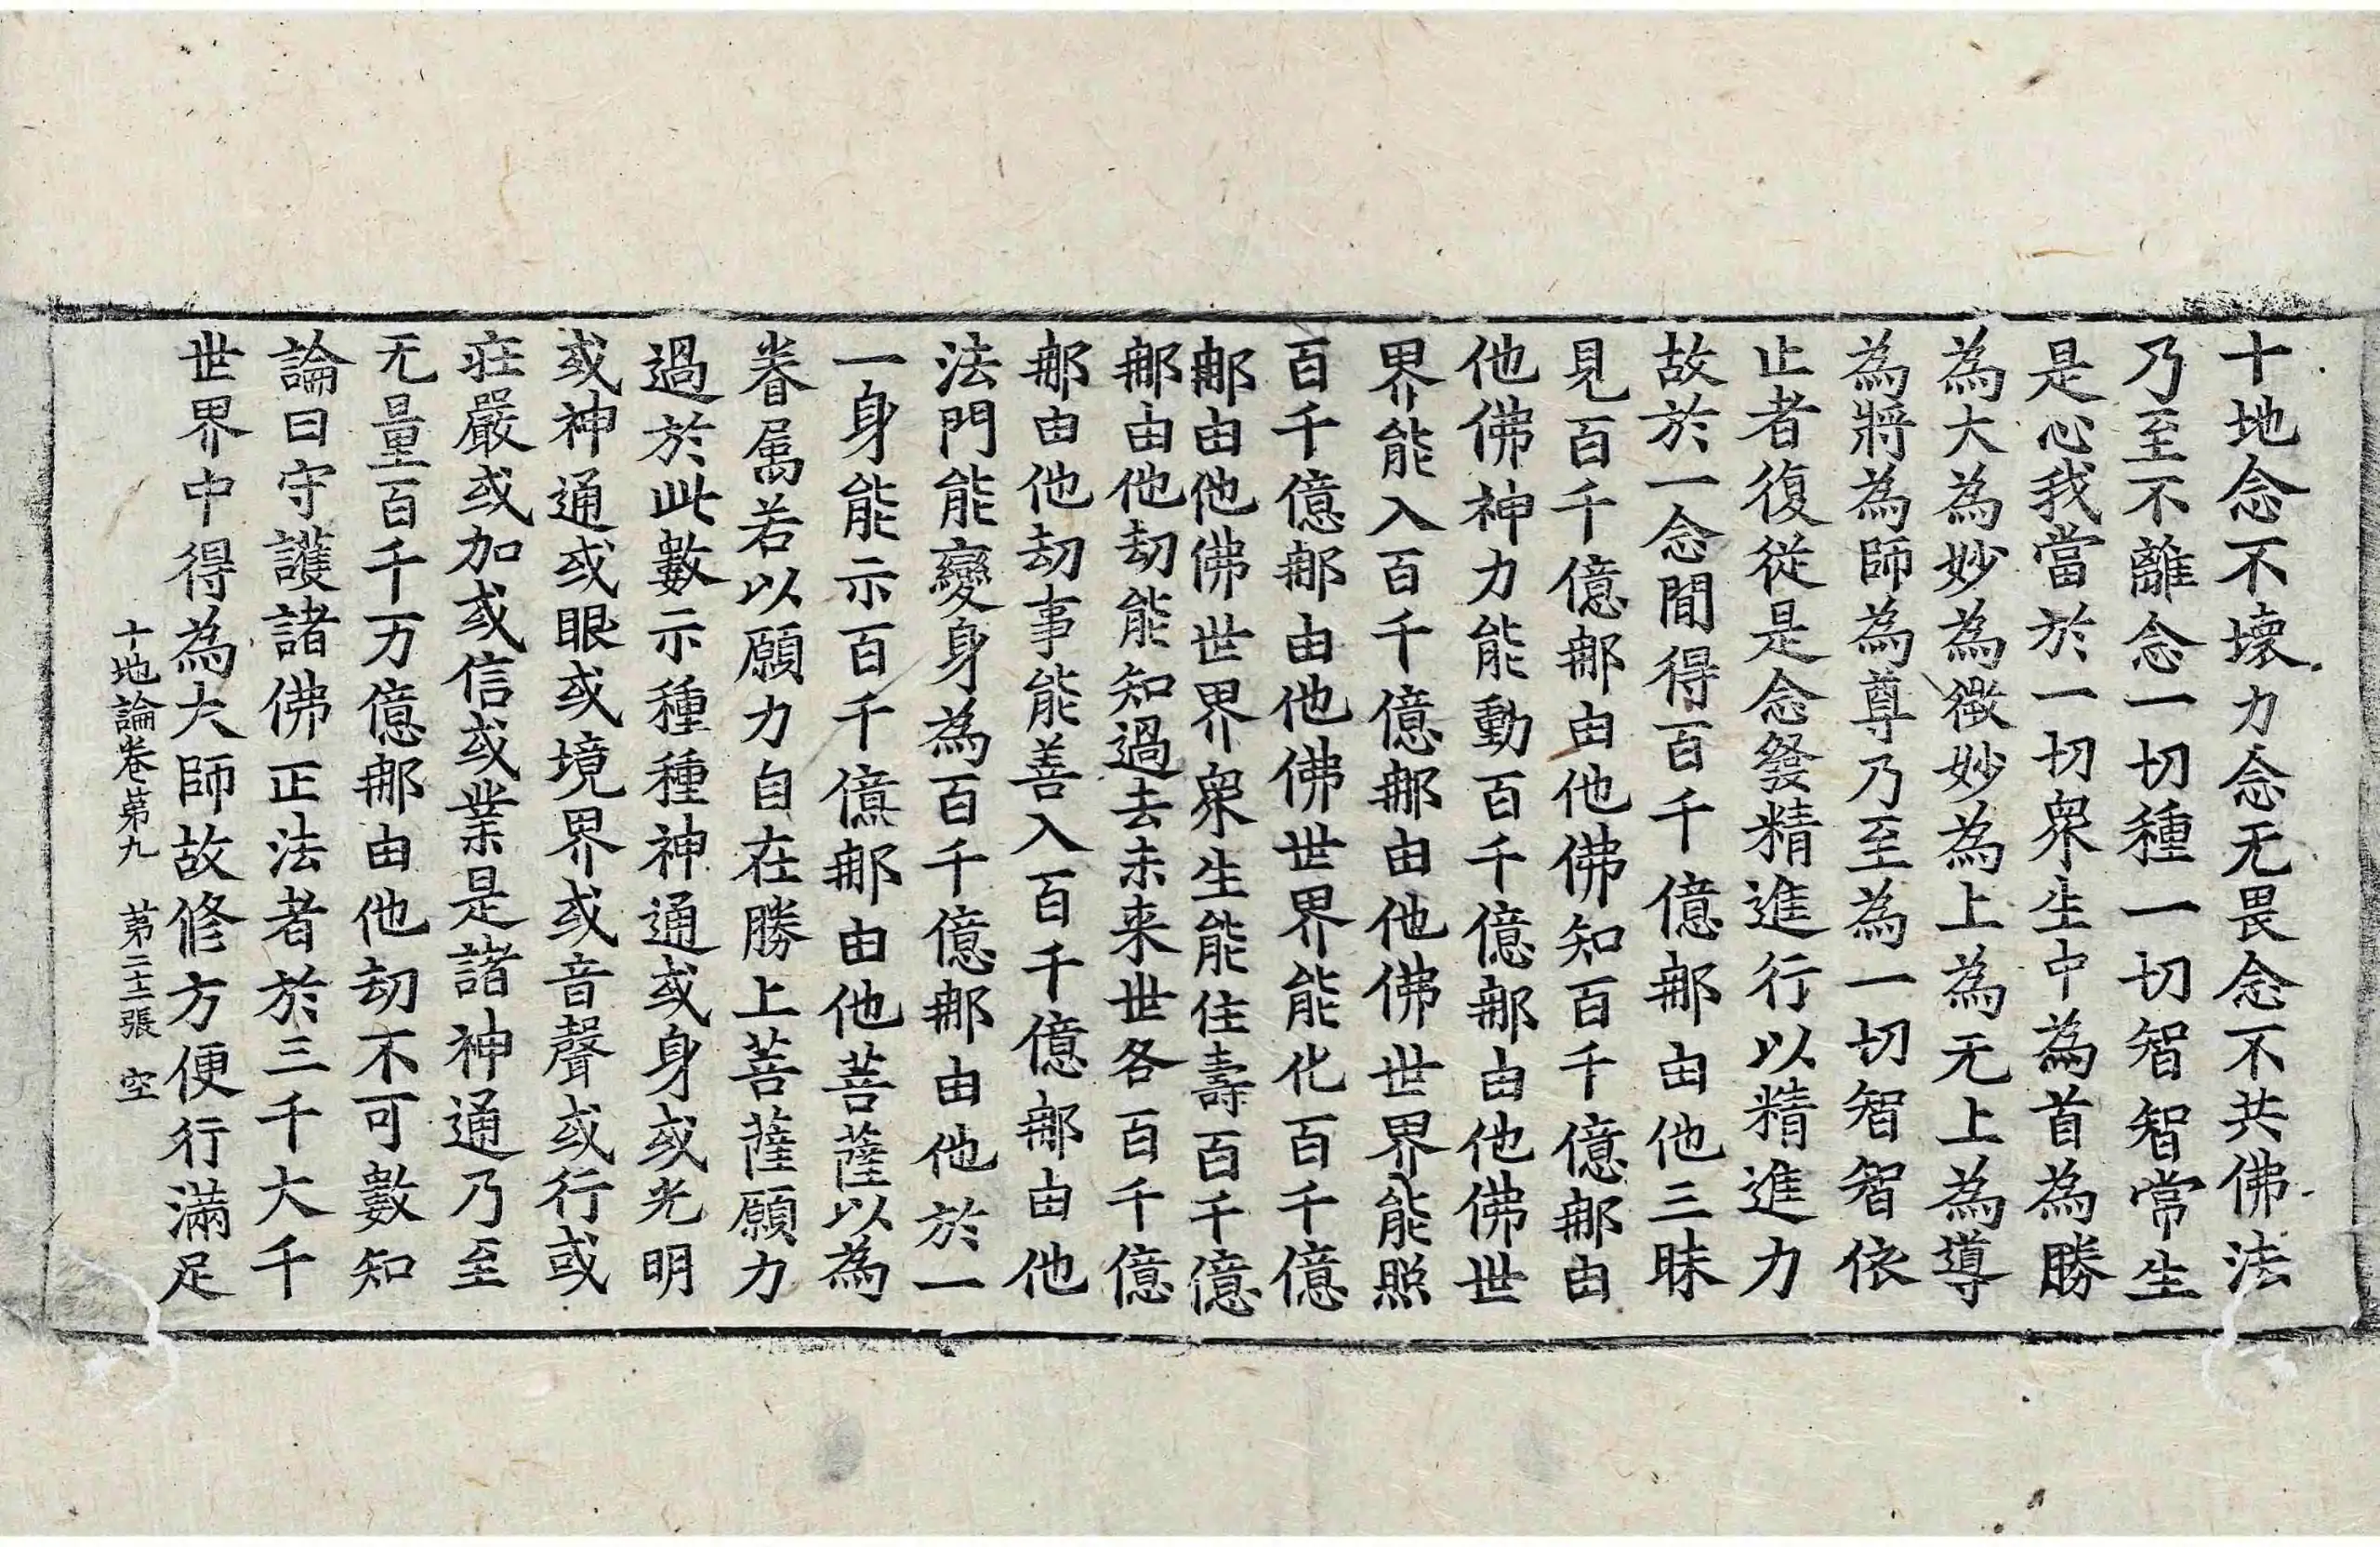 十地念不壞力念无畏念不共佛法
乃至不離念一切種一切智智常生
是心我當於一切衆生中為首為勝
為大為妙為微妙為上為无上為導
為將為師為尊乃至為一切智智依
止者復從是念發精進行以精進力
故於一念閒得百千億郍由他三昧
見百千億郍由他佛知百千億郍由
他佛神力能動百千億郍由他佛世
界能入百千億郍由他佛世界能照
百千億郍由他佛世界能化百千億
郍由他佛世界衆生能住壽百千億
郍由他劫能知過去未来世各百千億
郍由他劫事能善入百千億郍由他
法門能變身為百千億郍由他於一
一身能示百千億郍由他菩薩以為
眷属若以願力自在勝上菩薩願力
過於此數示種種神通或身或光明
或神通或眼或境界或音聲或行或
莊嚴或加或信或業是諸神通乃至
无量百千万億郍由他劫不可數知
論曰守護諸佛正法者於三千大千
世界中得為大師故修方便行滿足
十地論卷第九 第二十二張 空